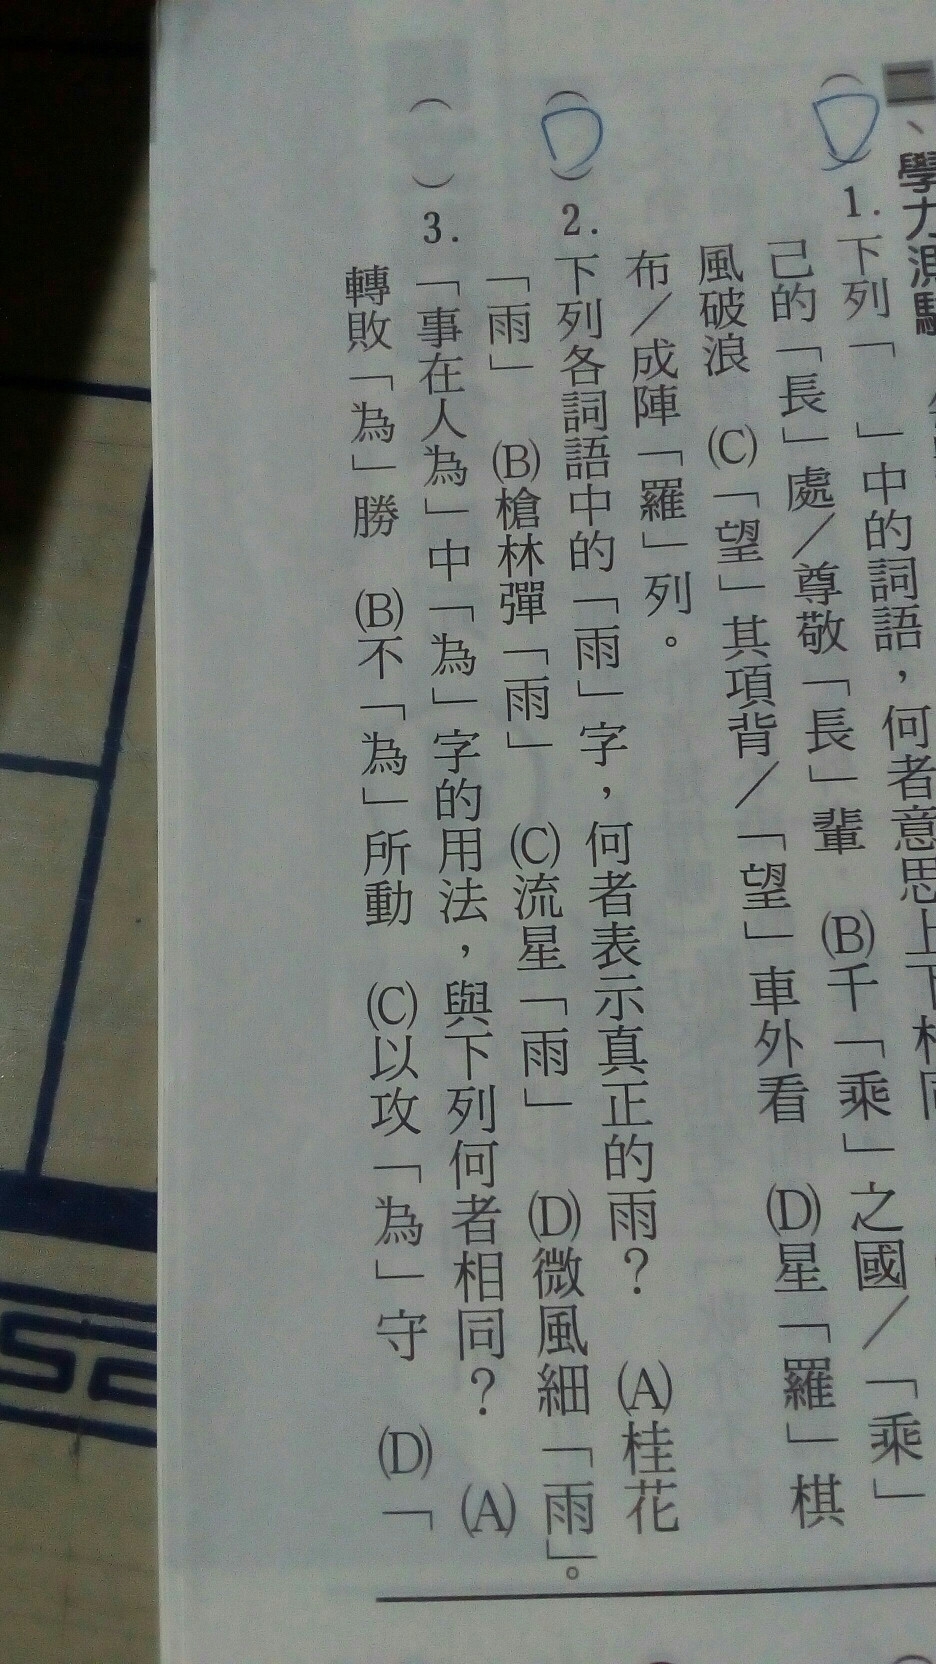 二、學力測驗
(D) 1. 下列「　」中的詞語，何者意思上下相同
己的「長」處／尊敬「長」輩　(B)千「乘」之國／「乘」
風破浪　(C)「望」其項背／「望」車外看　(D)星「羅」棋
布／成陣「羅」列。
(D) 2. 下列各詞語中的「雨」字，何者表示真正的雨？　(A)桂花
「雨」　(B)槍林彈「雨」　(C)流星「雨」　(D)微風細「雨」。
(　) 3. 「事在人為」中「為」字的用法，與下列何者相同？　(A)
轉敗「為」勝　(B)不「為」所動　(C)以攻「為」守　(D)「